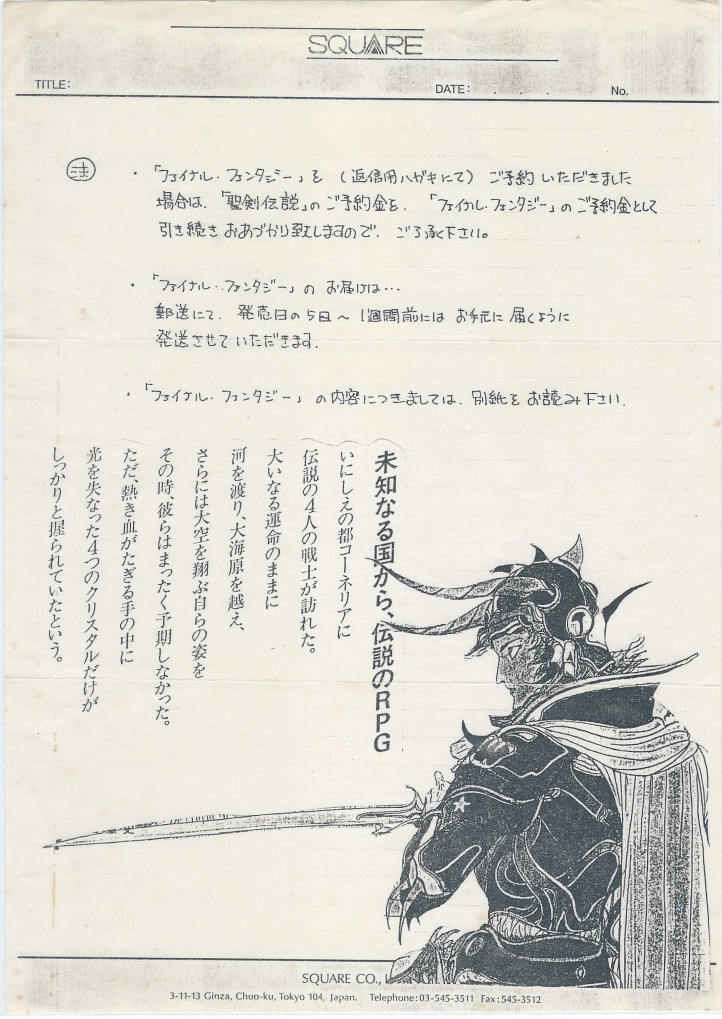 SQUARE
TITLE:
DATE: . .
No.
注
・「ファイナル・ファンタジー」を(返信用ハガキにて)ご予約いただきました
場合は、「聖剣伝説」のご予約金を、「ファイナル・ファンタジー」のご予約金として
引き続きおあづかり致しますので、ご了承下さい。
・「ファイナル・ファンタジー」のお届けは…
郵送にて、発売日の5日〜1週間前にはお手元に届くように
発送させていただきます.
・「ファイナル・ファンタジー」の内容につきましては、別紙をお読み下さい.
未知なる国から、伝説のRPG
いにしえの都コーネリアに
伝説の4人の戦士が訪れた。
大いなる運命のままに
河を渡り、大海原を越え、
さらには大空を翔ぶ自らの姿を
その時、彼らはまったく予期しなかった。
ただ、熱き血がたぎる手の中に
光を失なった4つのクリスタルだけが
しっかりと握られていたという。
SQUARE CO.,
3-11-13 Ginza, Chuo-ku, Tokyo 104, Japan. Telephone:03-545-3511 Fax:545-3512